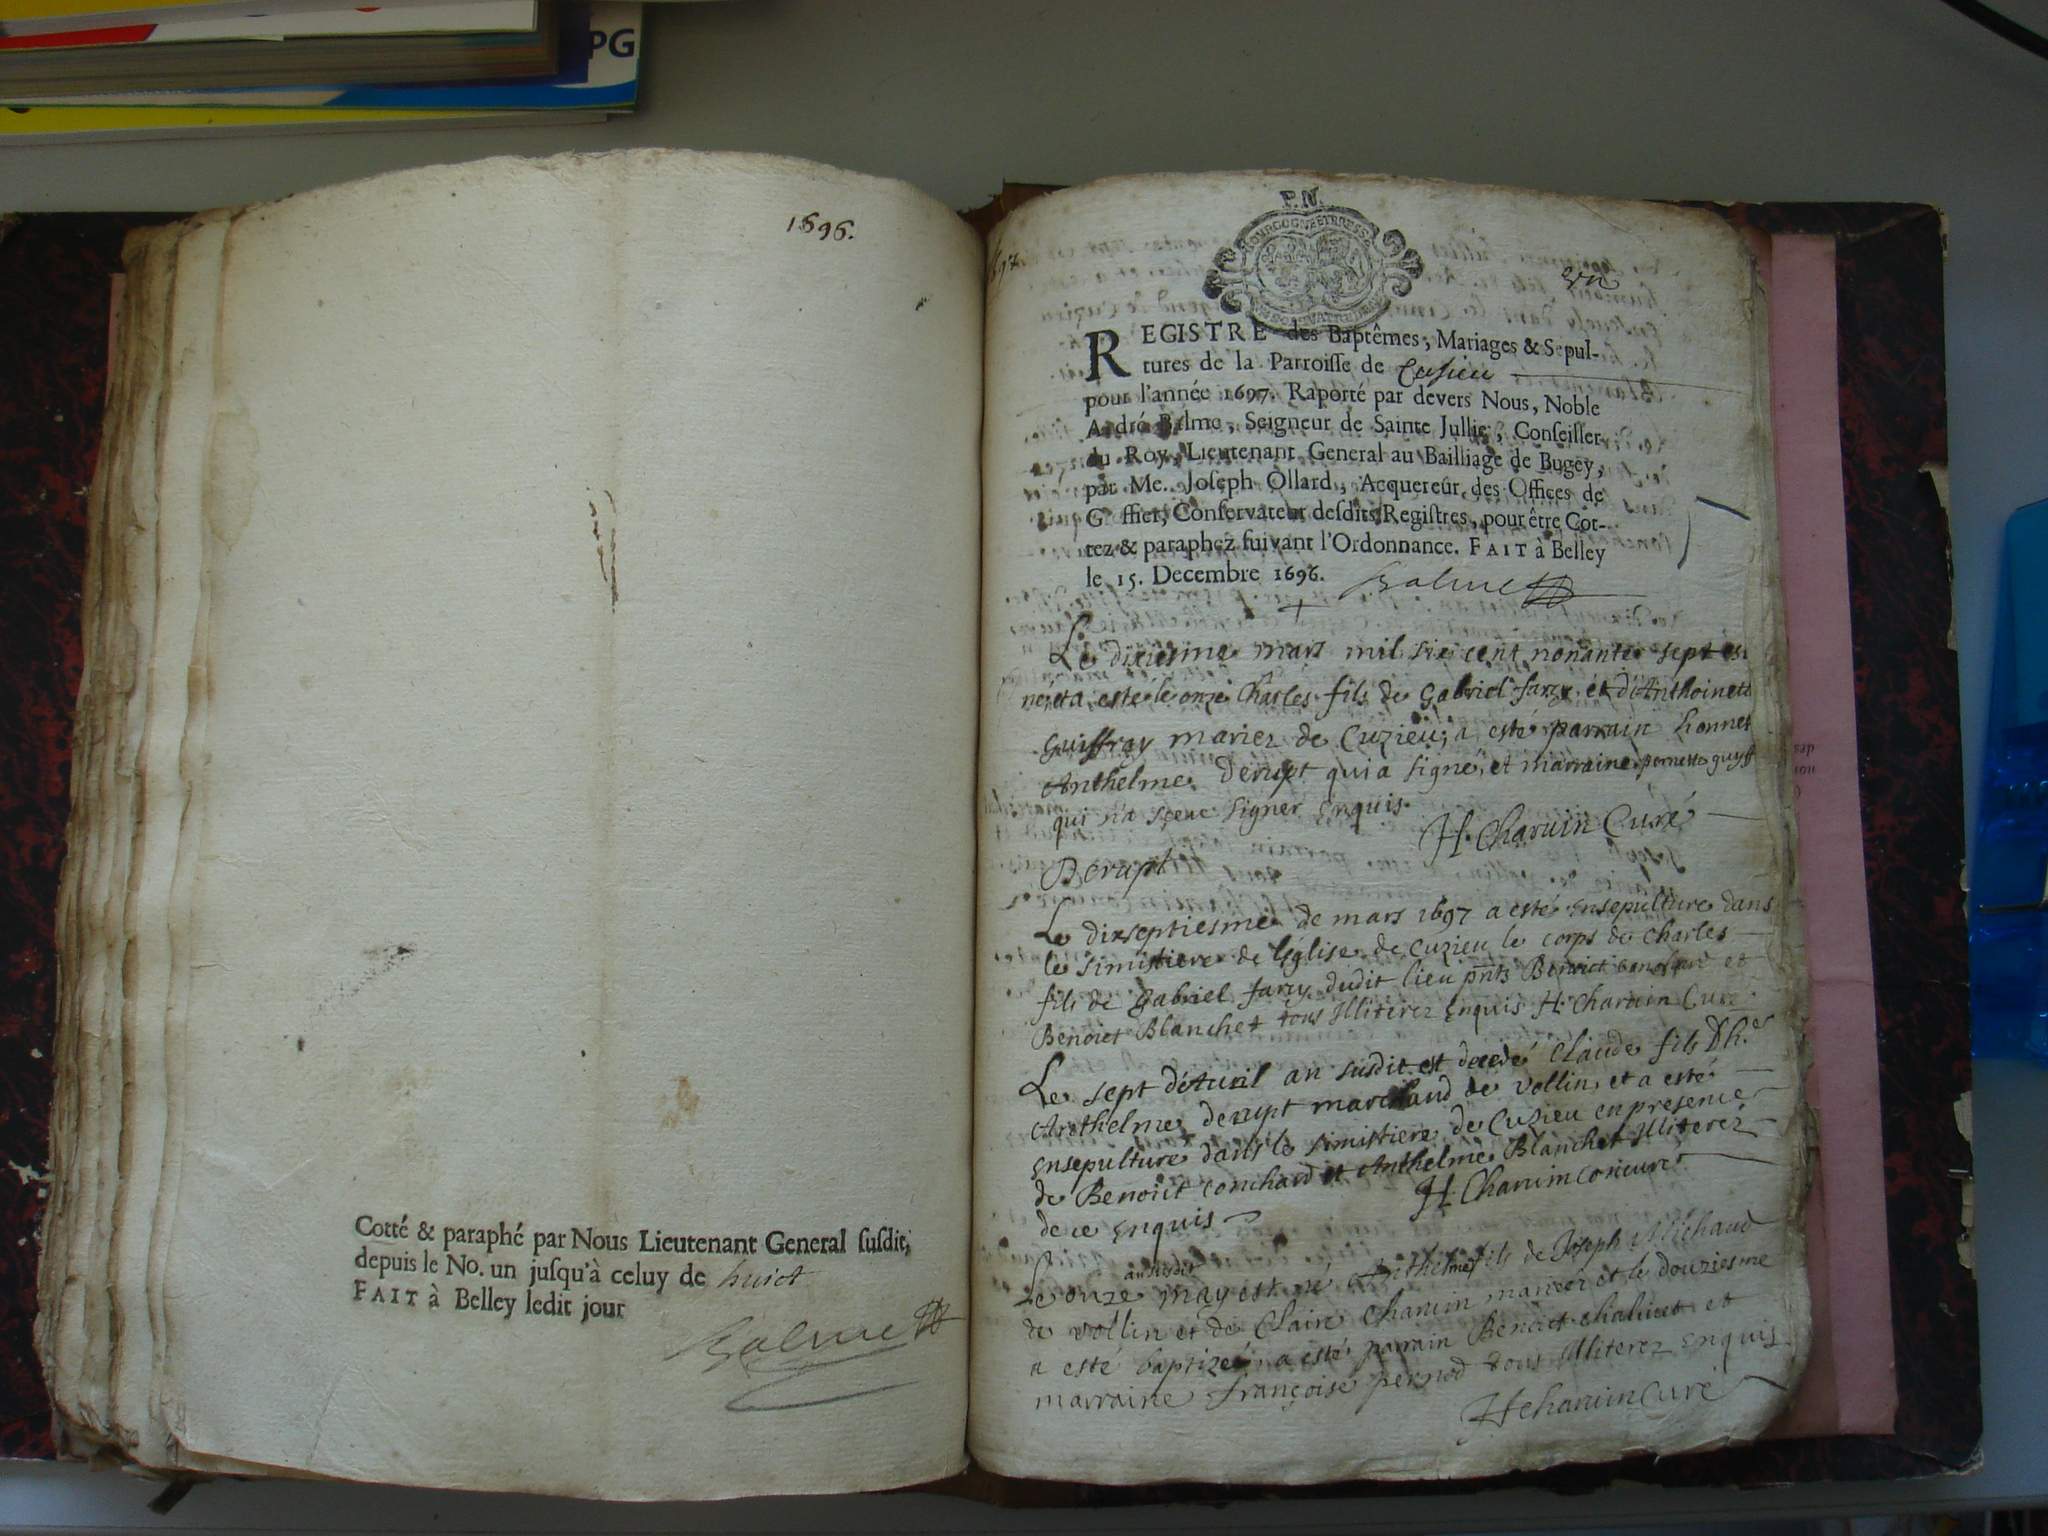 PG
1696.
Cotté & paraphé par Nous Lieutenant General ſuſdit,
depuis le No. un juſqu'à celuy de huict
FAIT à Belley ledit jour
Balme
P.N.
BOURGOGNE ET BRESSE
un
REGISTRE des Baptêmes, Mariages & Sepul-
tures de la Parroiſſe de Cusieu
pour l'année 1697. Raporté par devers Nous, Noble
André Balme, Seigneur de Sainte Jullie, Conſeiller
du Roy, Lieutenant General au Bailliage de Bugey,
par Me. Joſeph Ollard, Acquereur des Offices de
Greffier, Conſervateur deſdits Regiſtres, pour être Cot-
tez & paraphez ſuivant l'Ordonnance. FAIT à Belley
le 15. Decembre 1696. Balme
Le dixiesme mars mil six cent nonante sept est
né, et a esté le onze Charles fils de Gabriel farcy et d'Anthoinett
Guiffray mariez de Cuzieu, a esté parrain honnet
Anthelme Derupt qui a signé, et marraine pernette guyff
qui n'a sçeue signer enquis.
H. Charuin Curé
Derupt
Le dixseptiesme de mars 1697 a esté ensepulture dans
le simistiere de l'église de Cuzieu le corps de Charles
fils de Gabriel farcy dudit lieu pnts Benoict conchard et
Benoict Blanchet tous Illiterez enquis H. Charuin Curé
Le sept d'Auril an susdit est decedé Claude fils d'h.er
Anthelme derupt marchand de vollin, et a esté
ensepulture dans le simistiere de Cuzieu en presence
de Benoict conchard et Anthelme Blanchet Illiterez
de ce enquis
H. Charuin Curé
an susdit
Le onze may est né Anthelme fils de Joseph Michaud
de vollin et de Claire Charuin mariez et le douziesme
a esté baptizé, a esté parrain Benoict et
marraine françoise pernod tous Illiterez enquis
H Charuin Curé